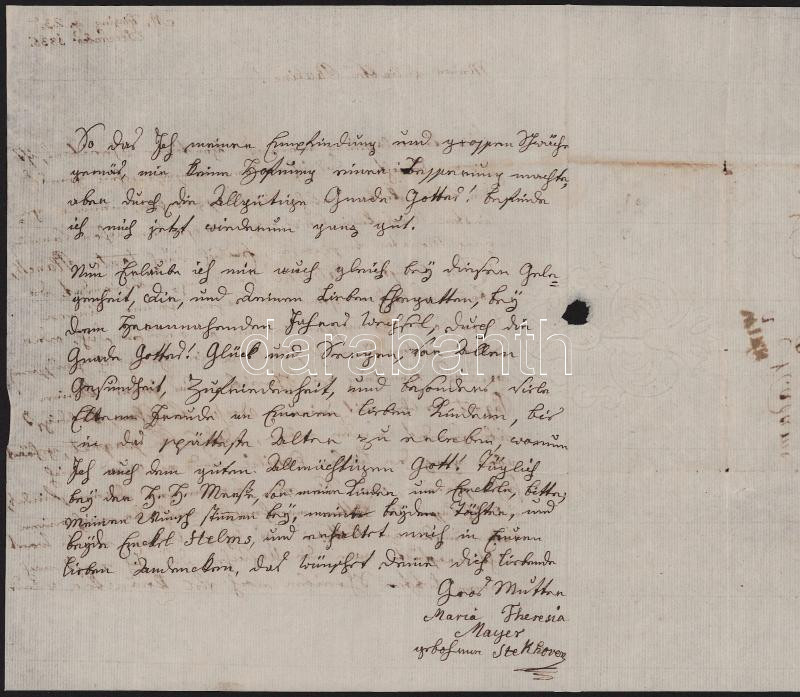 So das Ich meiner Empfindung und grossen Schwäche
gemäs, mir keine Hofnung einer Besserung machte,
aber durch die Allgütige Gnade Gottes! befinde
ich mich jetzt wiederum ganz gut.
Nun Erlaube ich mir auch gleich bey diesen Gele=
genheit, Dir, und Deinen Lieben Ehegatten, bey
dem Herannahenden Jahres Wechsel, durch die
Gnade Gottes! Glück und Seegen, von Allen
Gesundheit, Zufriedenheit, und besonders viele
Eltern Freude an Eueren lieben Kindern, bis
in das spätteste Alter zu erleben, warum
Ich auch dem guten Allmächtigen Gott! Täglich
bey der H. H. Messe, von meine Kinder und Enckeln, bitte,
Meinen Wunsch stimen bey, meine beyden Töchter, und
beyde Enckel Helms, und erhaltet mich in Euren
lieben Andencken, das wünschet Deine dich liebende
Gros Mutter
Maria Theresia
Mayer
gebohrne Stekhoven
darabanth